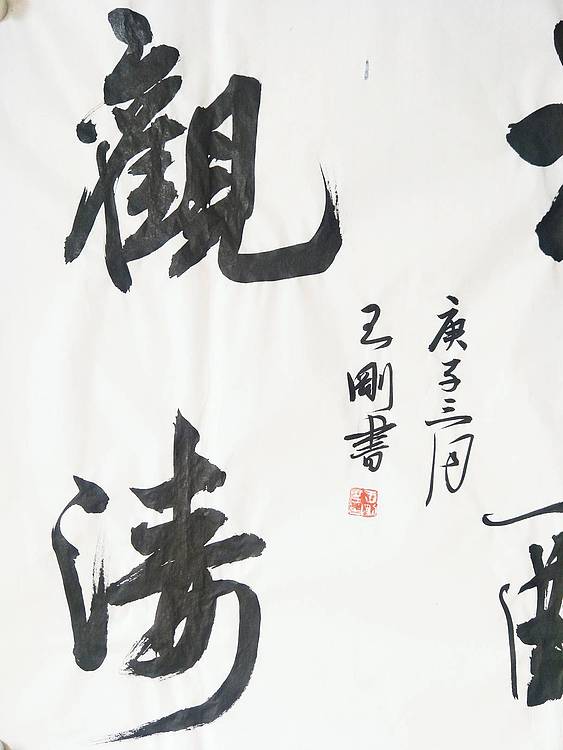 庚子三月
王剛書
觀
濤